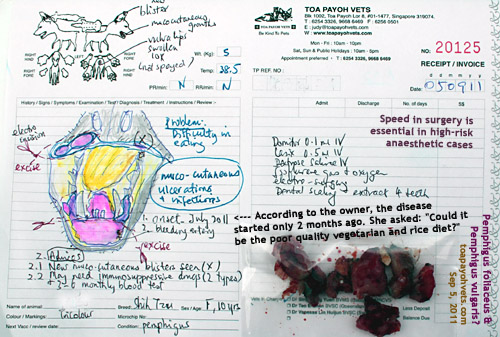 blister
mucocutaneous growths
vulva lips
swollen
10x
(not spayed)
RIGHT HIND
LEFT HIND
RIGHT FORE
Wt. (Kg): 5
Temp: 38.5
PR/min: N
N
History / Signs / Symptoms / Examination / Test / Diagnosis / Treatment / Instructions / Review :-
Problem:
Difficulty in
eating
electro
incision
(x)
excise
muco-cutaneous
ulcerations
& infections
1. onset July 2011
2. bleeding
excise
2. Advices
2.1 New muco-cutaneous blisters seen (x)
2.2 May need immunosuppressive drugs (2 types)
+ 3-6 monthly blood test
Name of animal:
Breed: Shih Tzu
Sex / Age: F, 10 yrs
Colour / Markings: Tricolour
Microchip No:
Next Vacc / review date:
Condition: pemphigus
TOA PAYOH VETS
Blk 1002, Toa Payoh Lor 8, #01-1477, Singapore 319074.
T : 6254 3326, 9668 6469 F : 6256 0501
E : judy@toapayohvets.com
W : www.toapayohvets.com
Be Kind To Pets
Mon - Fri : 10am - 10pm
Sat, Sun & Public Holidays : 10am - 5pm
Appointment preferred - T : 6254 3326, 9668 6469
NO: 20125
RECEIPT / INVOICE
d d m m y y
Date: 050911
TP REF NO :
Admit
Discharge
Number of Days
S$
Speed in surgery is
essential in high-risk
anaesthetic cases
Domitor 0.1 ml IV
Lasix 0.5 ml IV
Dextrose Saline IV
Isoflurane gas & oxygen
electro-surgery
Dental scaling extract 4 teeth
<--- According to the owner, the disease
started only 2 months ago. She asked: "Could it
be the poor quality vegetarian and rice diet?"
Less Deposit
Balance Due
Pemphigus foliaceus &
Pemphigus vulgaris?
toapayohvets.com
Sep 5, 2011